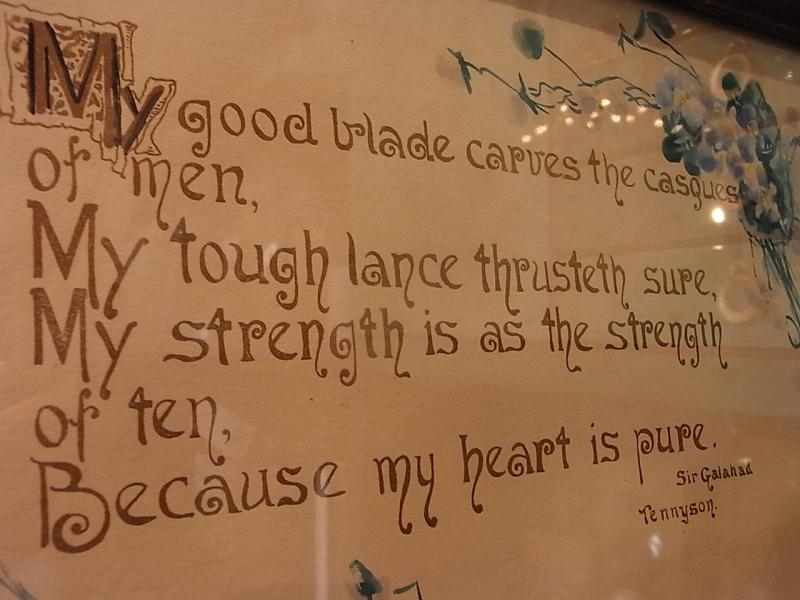 My good blade carves the casques
of men,
My tough lance thrusteth sure,
My strength is as the strength
of ten,
Because my heart is pure.
Sir Galahad
Tennyson.